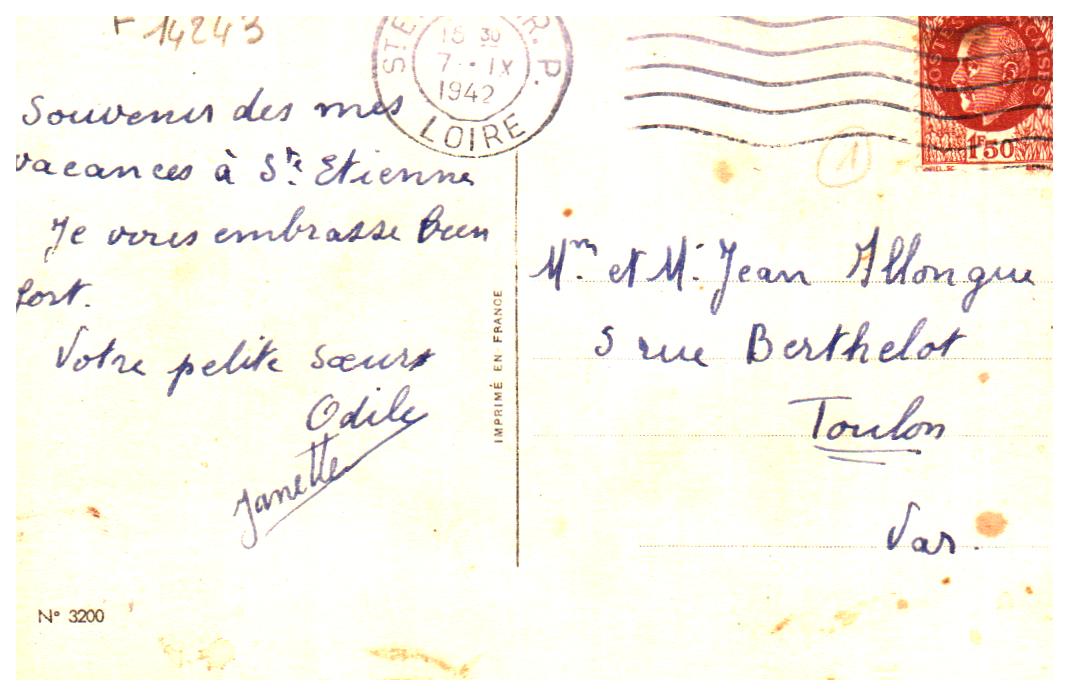 14243
STE R.P.
18 30
7 - IX
1942
LOIRE
POSTES FRANÇAISES
1F50
1
Souvenir des mes
vacances à Ste Etienne
Je vous embrasse bien
fort.
Votre petite sœur
Odile
Janette
IMPRIMÉ EN FRANCE
N° 3200
Mme et M. Jean Allongue
5 rue Berthelot
Toulon
Var.